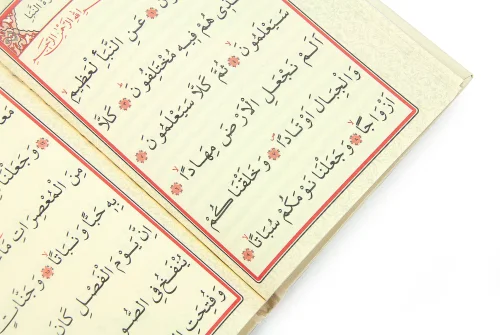 النَّبَأ
اللهِ الرَّحْمٰنِ الرَّحِيمِ
عَنِ النَّبَأِ الْعَظِيمِ
الَّذِي هُمْ فِيهِ مُخْتَلِفُونَ ۞ كَلَّا
سَيَعْلَمُونَ ۞ ثُمَّ كَلَّا سَيَعْلَمُونَ ۞
اَلَمْ نَجْعَلِ الْاَرْضَ مِهَادًا ۞
وَالْجِبَالَ اَوْتَادًا ۞ وَخَلَقْنَاكُمْ
اَزْوَاجًا ۞ وَجَعَلْنَا نَوْمَكُمْ سُبَاتًا ۞
وَجَعَلْنَا
مِنَ الْمُعْصِرَاتِ مَاءً
بِهِ حَبًّا وَنَبَاتًا ۞ وَجَنَّاتٍ
اِنَّ يَوْمَ الْفَصْلِ كَانَ
يُنْفَخُ فِي الصُّو
وَفُتِحَتِ